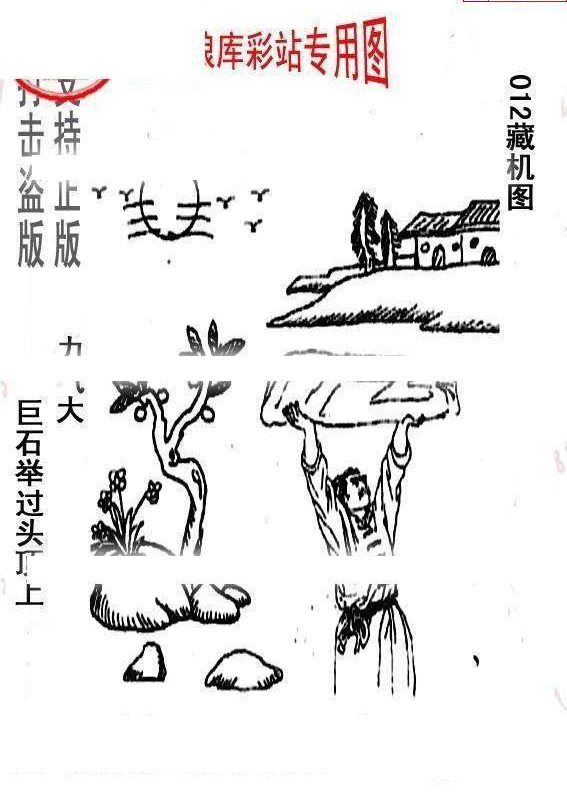 库彩站专用图
012藏机图
支持正版
打击盗版
大
巨石举过头顶上